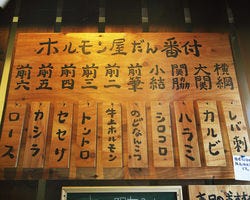 ホルモン屋だん番付
横綱
レバ刺
大関
カルビ
関脇
ハラミ
小結
シロコロ
前筆
のどなんこつ
前二
牛上ホルモン
前三
トントロ
前四
セセリ
前五
カシラ
前六
ロース